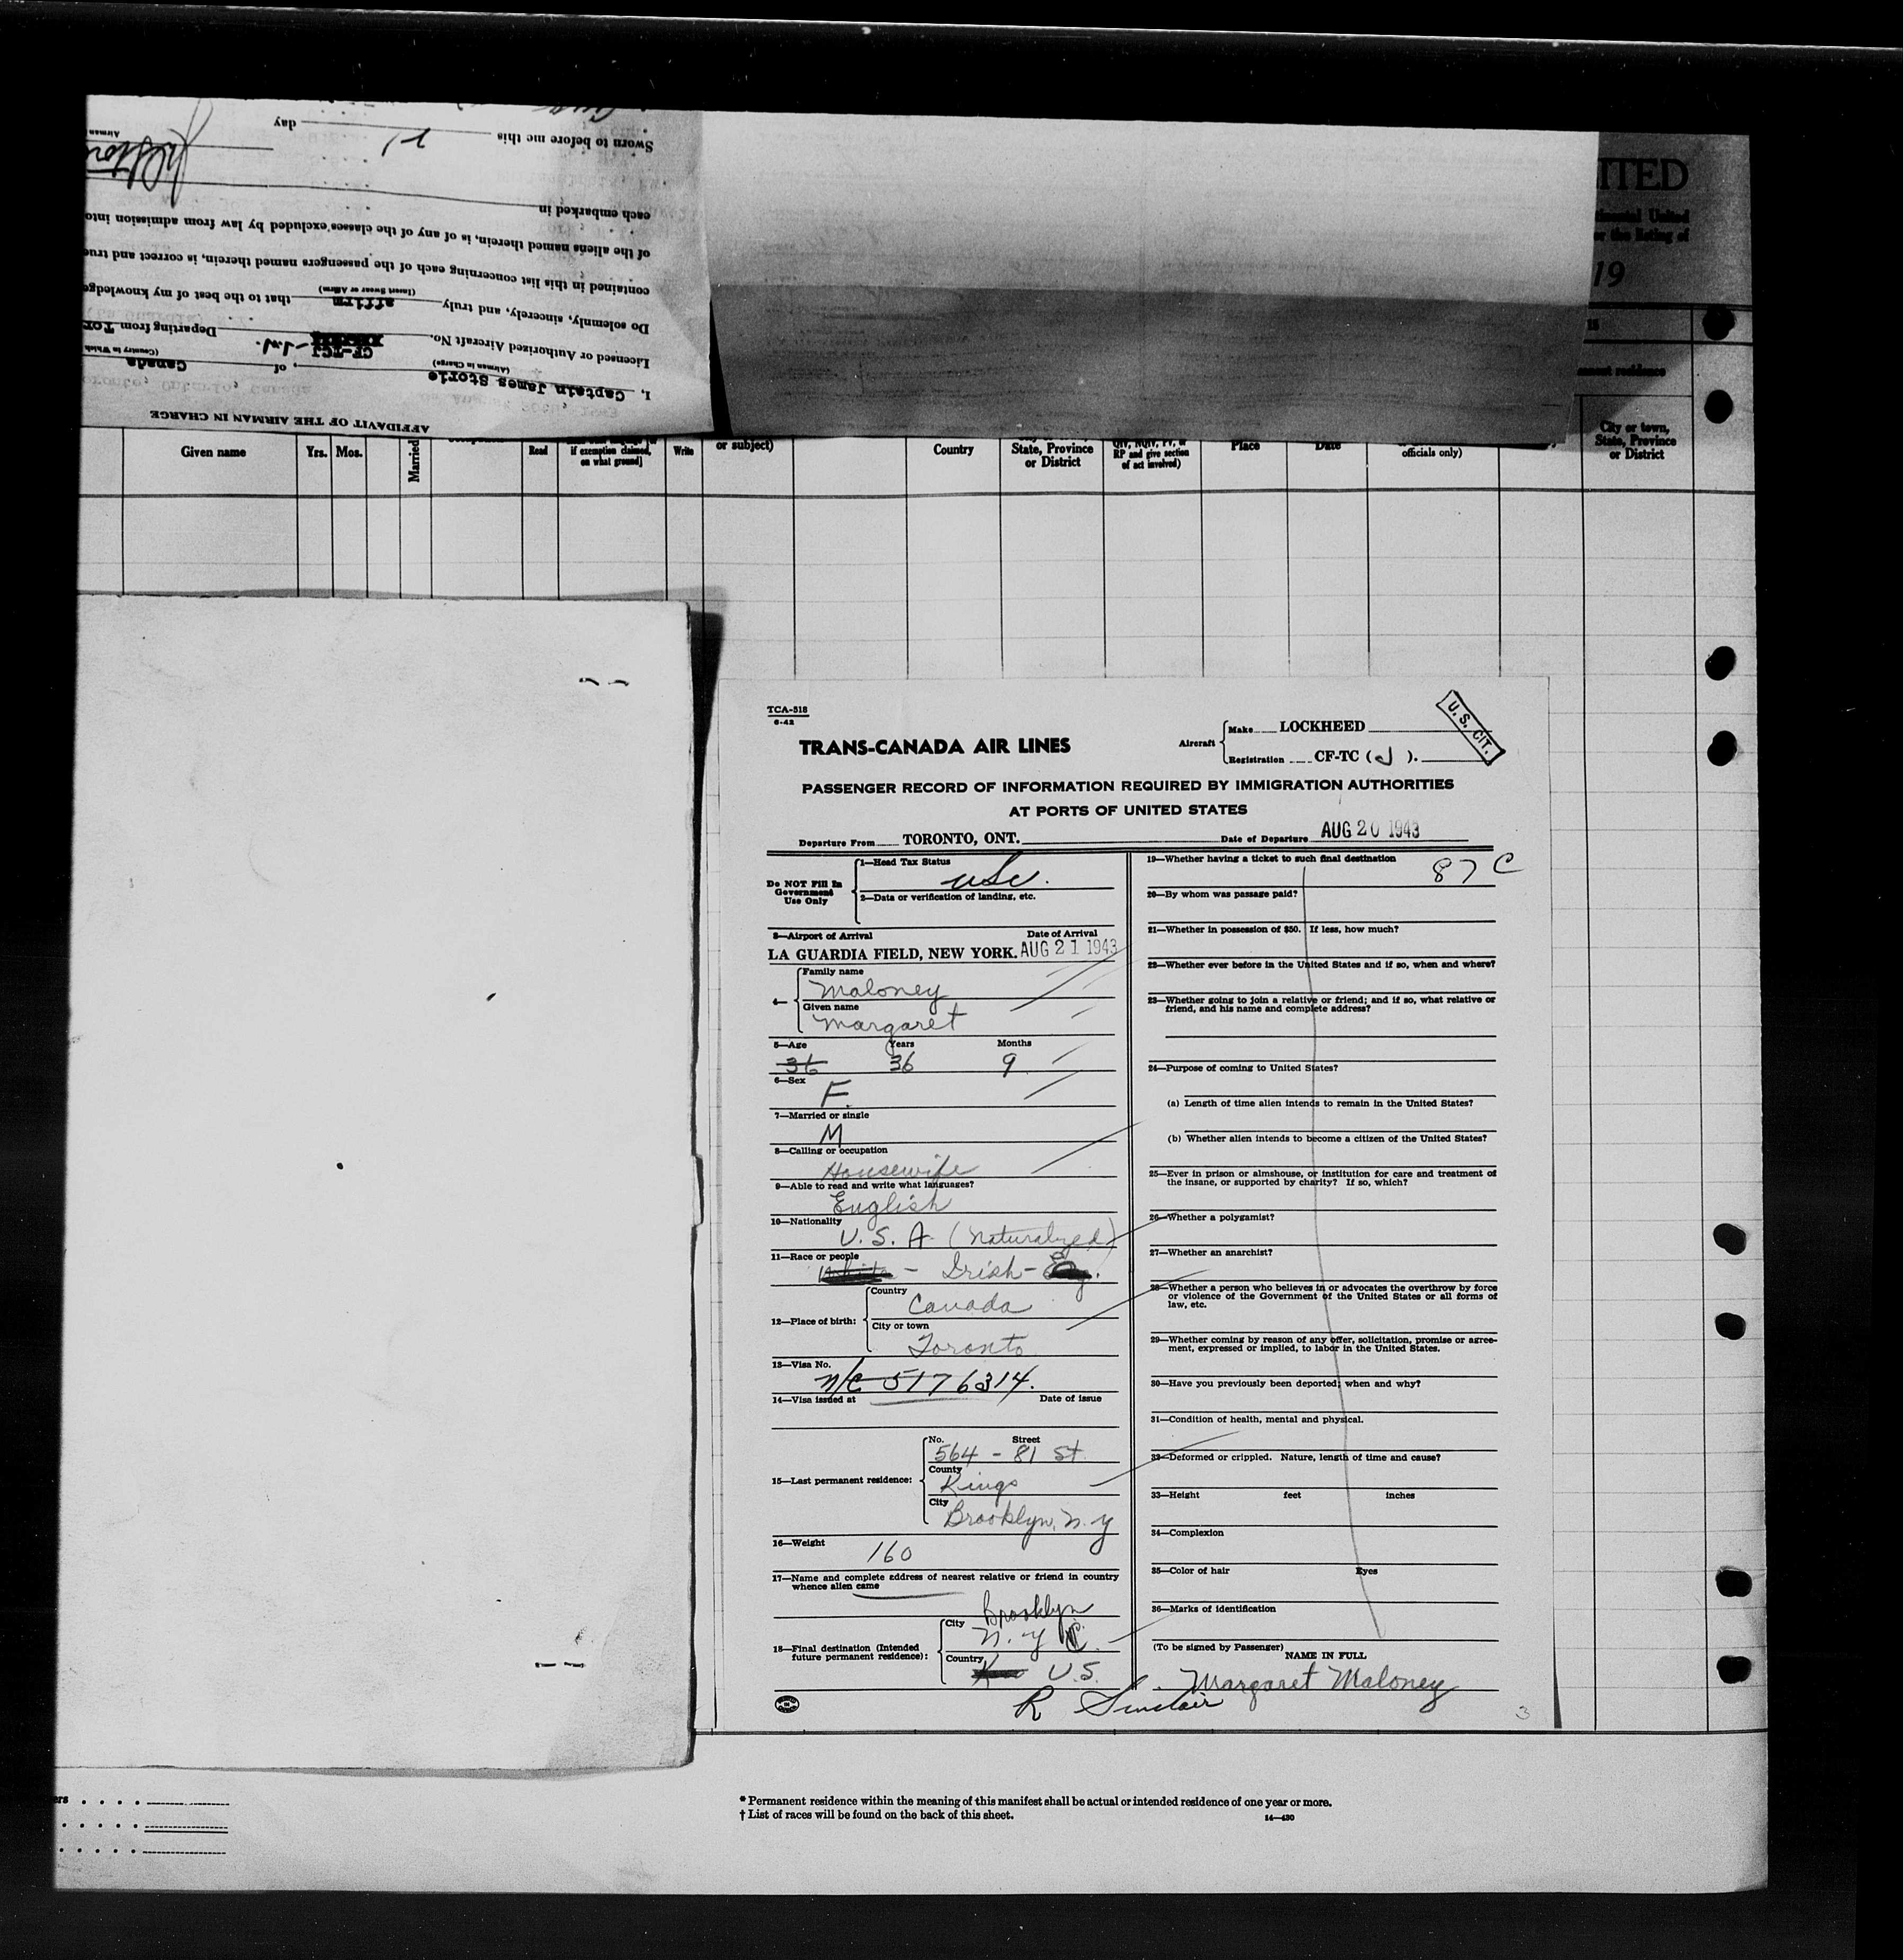 Sworn to before me this day
Airman
each embarked in
of the aliens named therein, is of any of the classes excluded by law from admission into
contained in this list concerning each of the passengers named therein, is correct and true
Do solemnly, sincerely, and truly affirm that to the best of my knowledge
(Insert Swear or Affirm)
Licensed or Authorized Aircraft No. CF-TCJ Departing from Tor
I, Captain James Storie, of Canada
(Airman in Charge) (Country in Which
AFFIDAVIT OF THE AIRMAN IN CHARGE
ITED
United
or the listing of
19
15
residence
City or town,
State, Province
or District
Given name Yrs. Mos. Married Read if exemption claimed, on what ground] Write or subject) Country State, Province or District RP and give section of act involved) Place Date officials only)
TCA-518
6-42
TRANS-CANADA AIR LINES
Aircraft Make LOCKHEED
Registration CF-TC (J).
U. S. CIT.
PASSENGER RECORD OF INFORMATION REQUIRED BY IMMIGRATION AUTHORITIES
AT PORTS OF UNITED STATES
Departure From TORONTO, ONT. Date of Departure AUG 20 1943
Do NOT Fill In
Government
Use Only
1—Head Tax Status
USC.
2—Data or verification of landing, etc.
3—Airport of Arrival Date of Arrival
LA GUARDIA FIELD, NEW YORK. AUG 21 1943
4— Family name
Maloney
Given name
Margaret
5—Age Years Months
36 36 9
6—Sex
F.
7—Married or single
M
8—Calling or occupation
Housewife
9—Able to read and write what languages?
English
10—Nationality
U. S. A. (Naturalized)
11—Race or people
White - Irish - Eng.
12—Place of birth: Country
Canada
City or town
Toronto
13—Visa No.
N/C 5176314.
14—Visa issued at Date of issue
15—Last permanent residence: No. Street
564 - 81 St
County
Kings
City
Brooklyn, N.Y
16—Weight
160
17—Name and complete address of nearest relative or friend in country
whence alien came
18—Final destination (Intended
future permanent residence):
City Brooklyn
N. Y C.
Country U.S.
R Sinclair
19—Whether having a ticket to such final destination
87 C
20—By whom was passage paid?
21—Whether in possession of $50. If less, how much?
22—Whether ever before in the United States and if so, when and where?
23—Whether going to join a relative or friend; and if so, what relative or
friend, and his name and complete address?
24—Purpose of coming to United States?
(a) Length of time alien intends to remain in the United States?
(b) Whether alien intends to become a citizen of the United States?
25—Ever in prison or almshouse, or institution for care and treatment of
the insane, or supported by charity? If so, which?
26—Whether a polygamist?
27—Whether an anarchist?
28—Whether a person who believes in or advocates the overthrow by force
or violence of the Government of the United States or all forms of
law, etc.
29—Whether coming by reason of any offer, solicitation, promise or agree-
ment, expressed or implied, to labor in the United States.
30—Have you previously been deported; when and why?
31—Condition of health, mental and physical.
32—Deformed or crippled. Nature, length of time and cause?
33—Height feet inches
34—Complexion
35—Color of hair Eyes
36—Marks of identification
(To be signed by Passenger)
NAME IN FULL
Margaret Maloney
3
* Permanent residence within the meaning of this manifest shall be actual or intended residence of one year or more.
† List of races will be found on the back of this sheet.
14—430